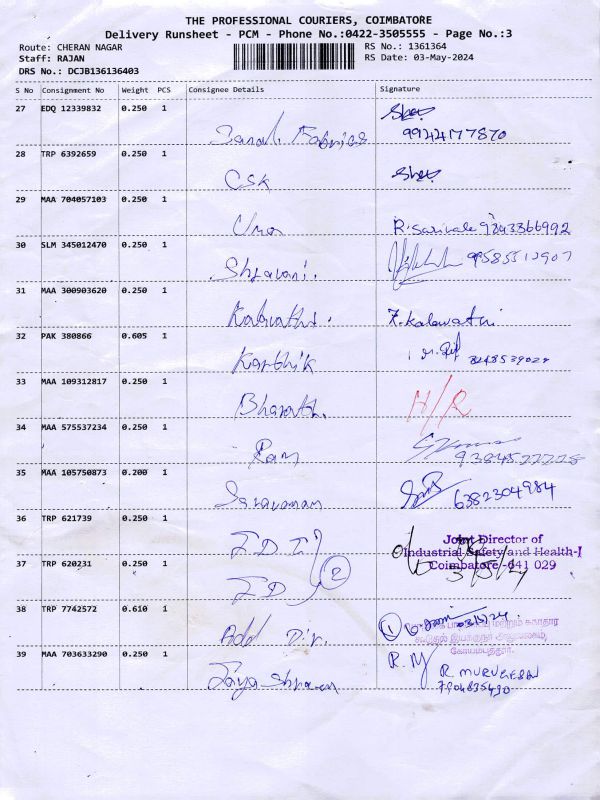 THE PROFESSIONAL COURIERS, COIMBATORE
Delivery Runsheet - PCM - Phone No.:0422-3505555 - Page No.:3
Route: CHERAN NAGAR
RS No.: 1361364
Staff: RAJAN
RS Date: 03-May-2024
DRS No.: DCJB136136403
S No Consignment No Weight PCS Consignee Details Signature
27 EDQ 12339832 0.250 1
Fabrics
28 TRP 6392659 0.250 1
CSK
29 MAA 704057103 0.250 1
Uma
30 SLM 345012470 0.250 1
Shravani.
31 MAA 300903620 0.250 1
Kalavathi. F. kalawathi
32 PAK 380866 0.605 1
Karthik
33 MAA 109312817 0.250 1
Bharath. H/R
34 MAA 575537234 0.250 1
Ram
35 MAA 105750873 0.200 1
Saravanan 6382304984
36 TRP 621739 0.250 1
Joint Director of
Industrial Safety and Health-I
Coimbatore -641 029
37 TRP 620231 0.250 1
2
38 TRP 7742572 0.610 1
Add Dir. 1
கோயம்புத்தூர்.
39 MAA 703633290 0.250 1
R. M
R. MURUGESAN
Jaya 7904835490